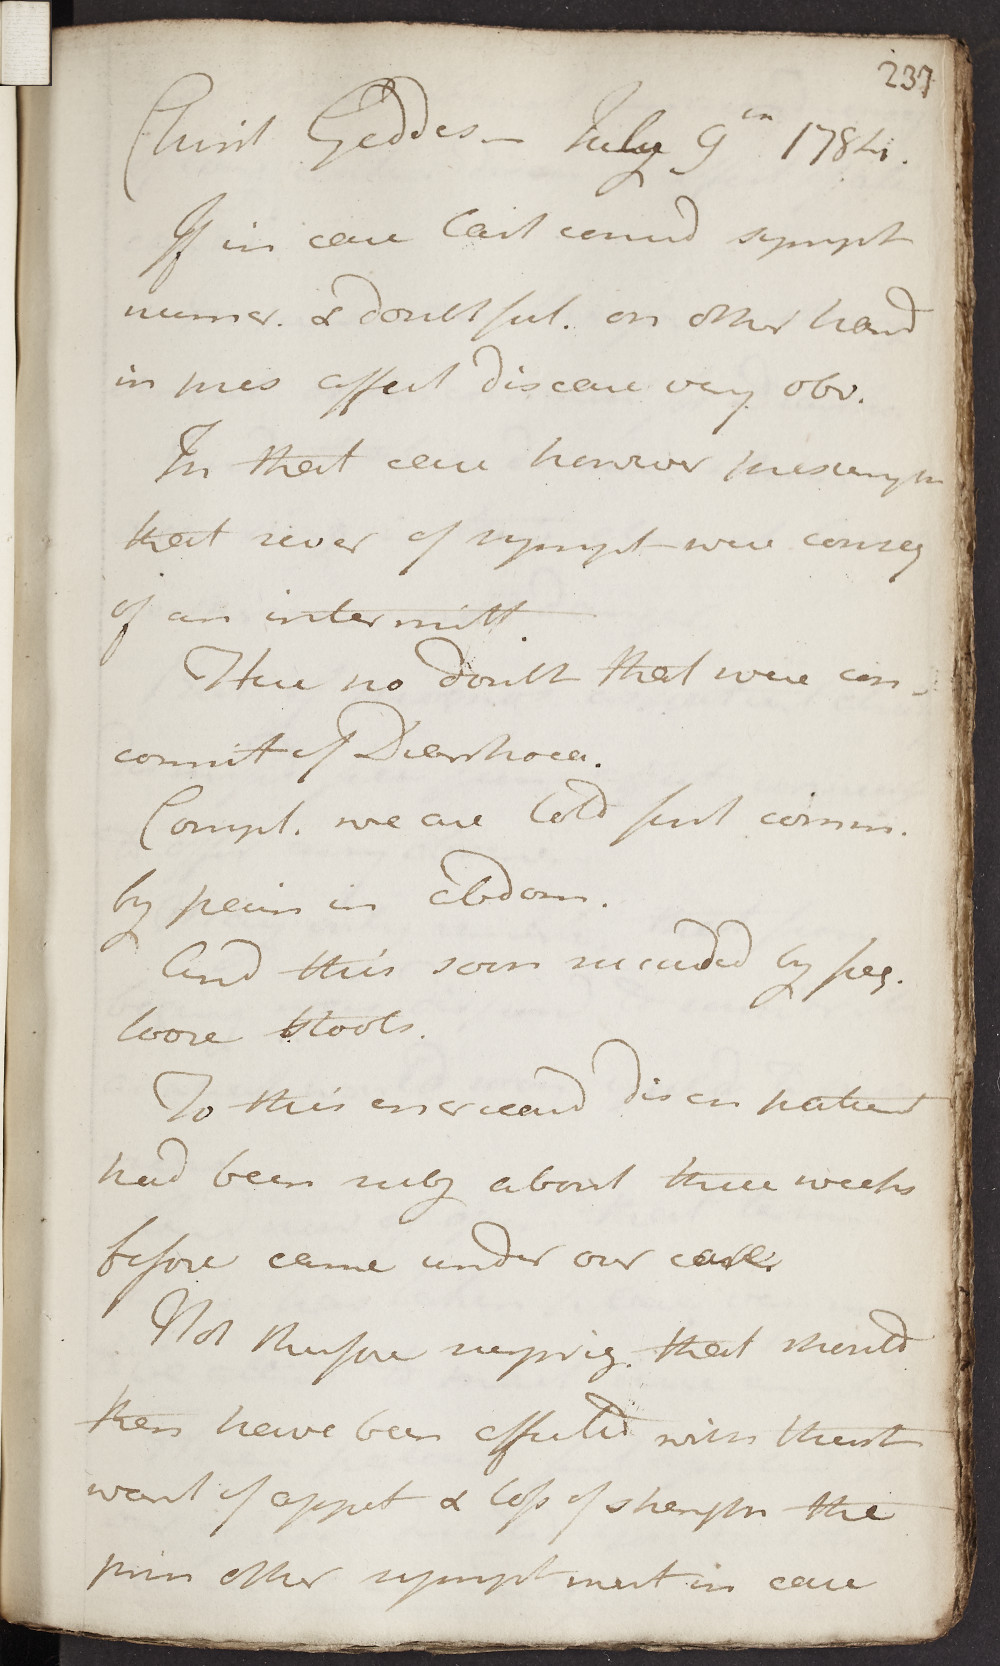 237
Christ Geddes - July 9th 1784.
If in case last consid sympt
numer. & doubtful. on other hand
in pres affect disease very obv.
In that case however presump
that sever of sympt were conseq
of an intermitt.
Here no doubt that were con-
comit of Diarrhoea.
Compl. we are told first comm.
by pain in abdom.
And this soon succeeded by freq.
loose stools.
To this disch patient
had been subj about three weeks
before came under our care.
Not therefore surpris. that should
then have been affected with thirst
want of appet & loss of strength the
prin other sympt ment in case